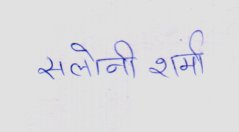 सलोनी शर्मा